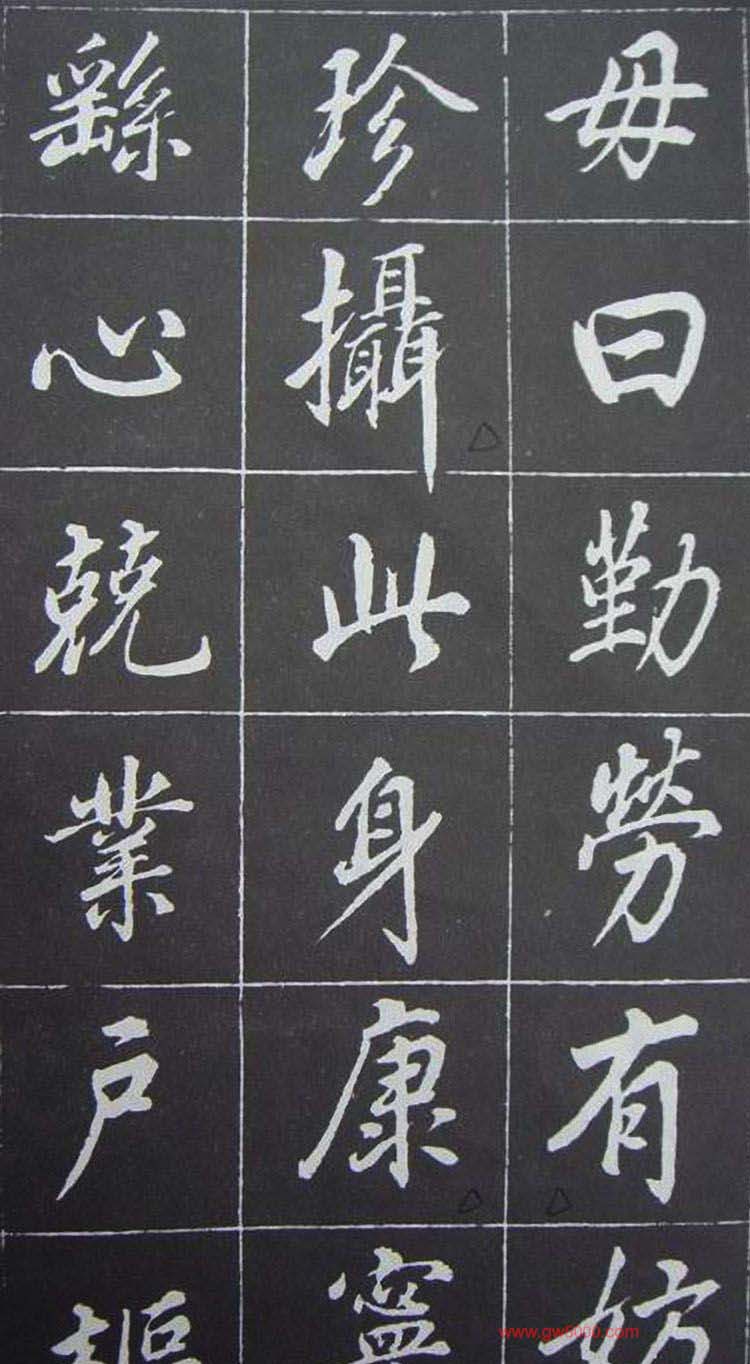 毋曰勤勞有妨
珍攝此身康寧
繇心兢業戶樞
www.gw5000.com